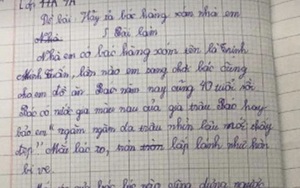 Lớp 1A 9A
Đề bài: Hãy tả bác hàng xóm nhà em
Bài làm
Nhà em có bác hàng xóm tên là Trinh
Minh Xuân, lần nào em sang chơi bác cũng
cho em đồ ăn. Bác năm nay cũng 40 tuổi rồi.
Bác có nước da màu nâu của da trâu. Bác hay
bảo em "ngăm ngăm da trâu nhìn lâu mới thấy
đẹp" Mắt bác to, tròn lấp lánh như hòn
bi ve.
bác lúc nào cũng đứng